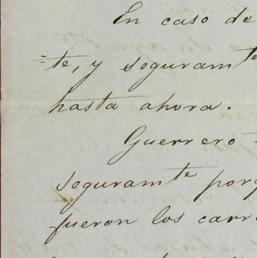 En caso de
=te, y seguramte
hasta ahora.
Guerrero
seguramte porq
fueron los carr